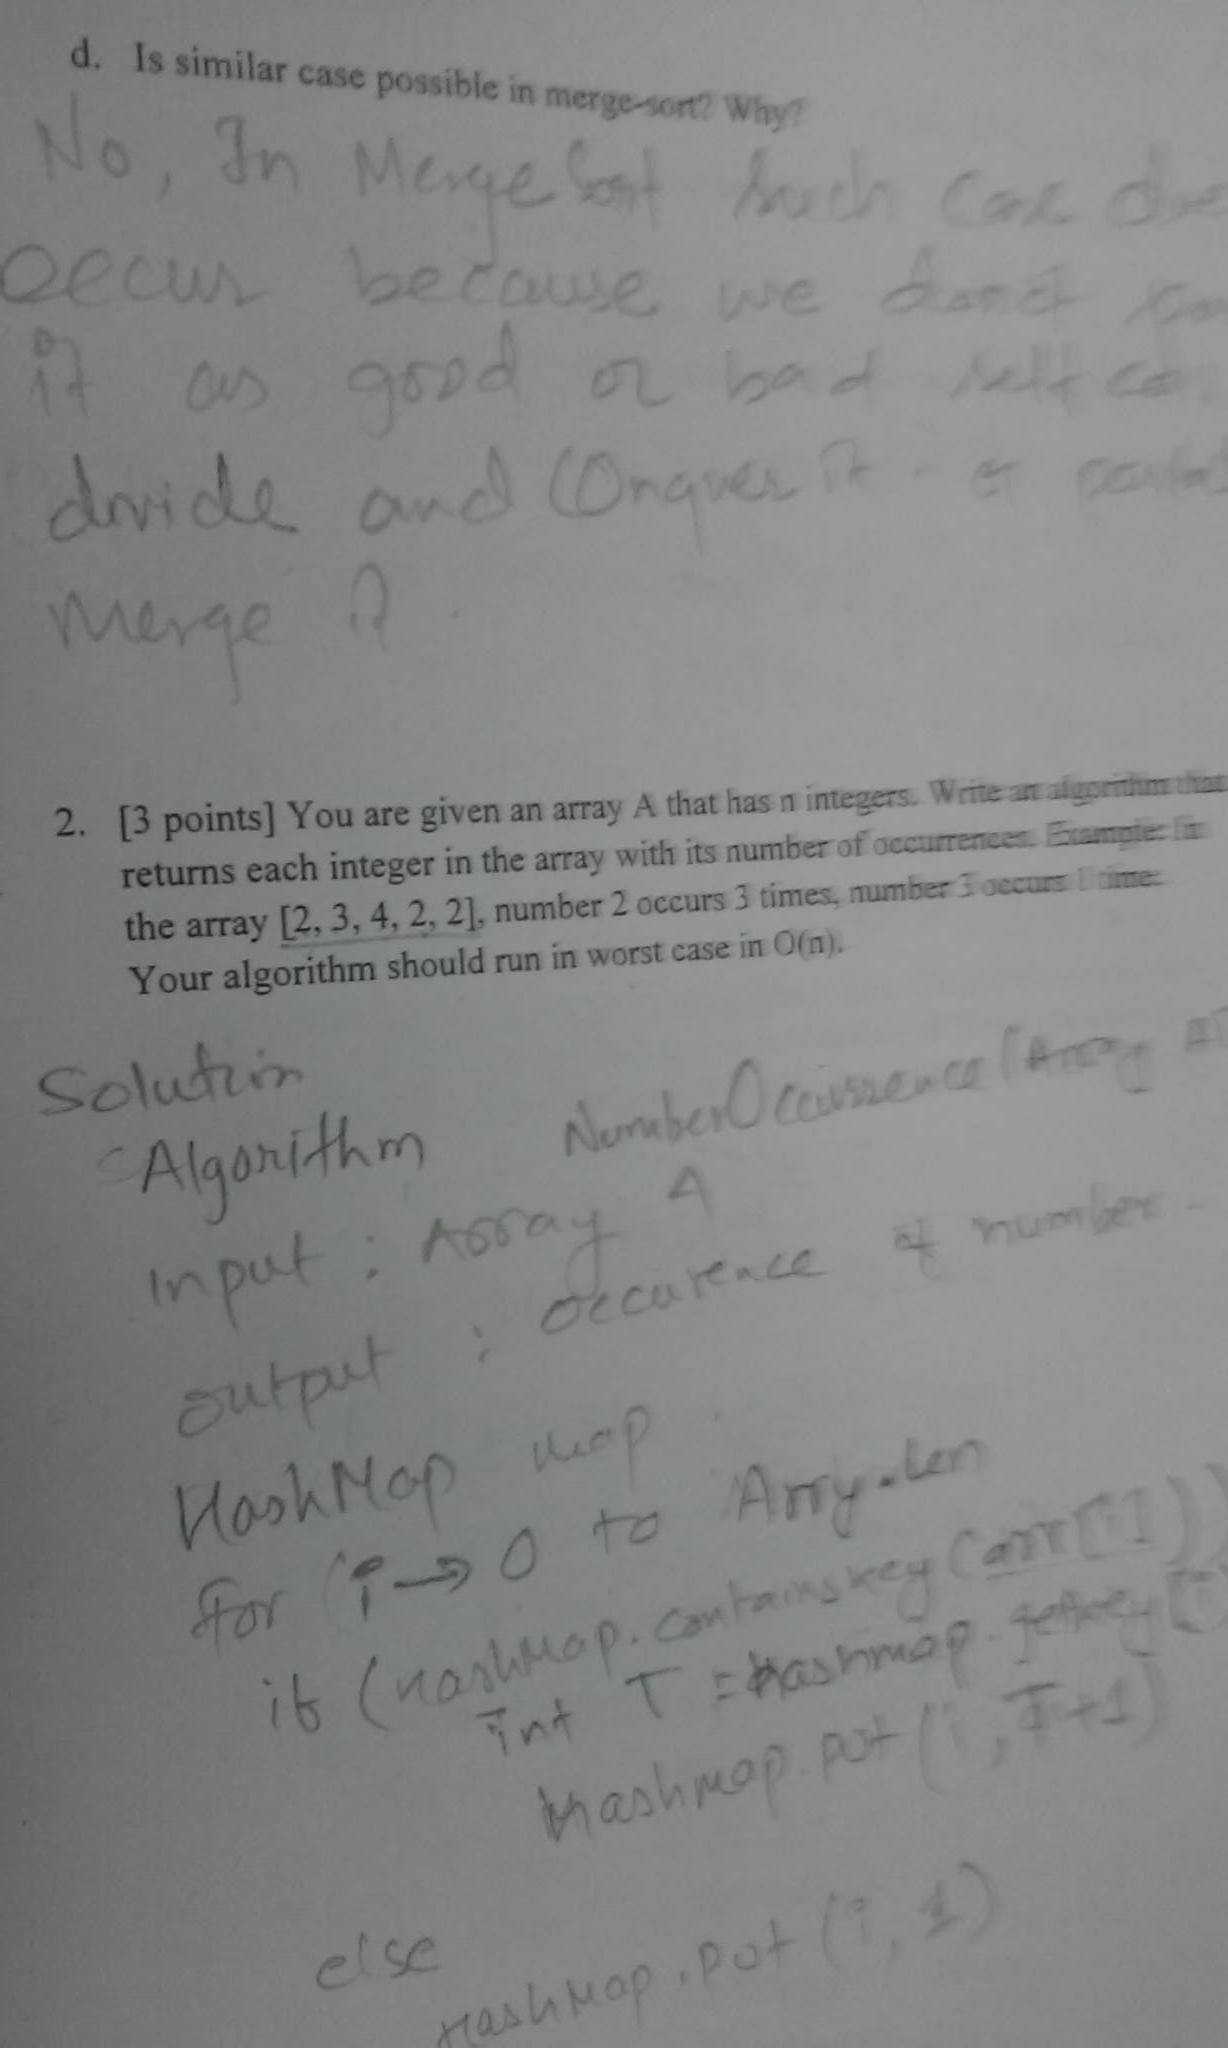 d. Is similar case possible in merge-sort? Why?
No, In Merge Sort such case
occur because we
it as good or bad
divide and Conquer it -
merge it.
2. [3 points] You are given an array A that has n integers. Write an algorithm that
returns each integer in the array with its number of occurrences. Example: in
the array [2, 3, 4, 2, 2], number 2 occurs 3 times, number 3 occurs 1 time.
Your algorithm should run in worst case in O(n).
Solution
Algorithm NumberOccurrence (Array A
Input : Array A
output : occurence of number
HashMap map
for (i → 0 to Arry.len
if (HashMap.containskey (arr[i]))
int T = Hashmap.getkey
Hashmap.put (i, T+1)
else
HashMap.put (i, 1)